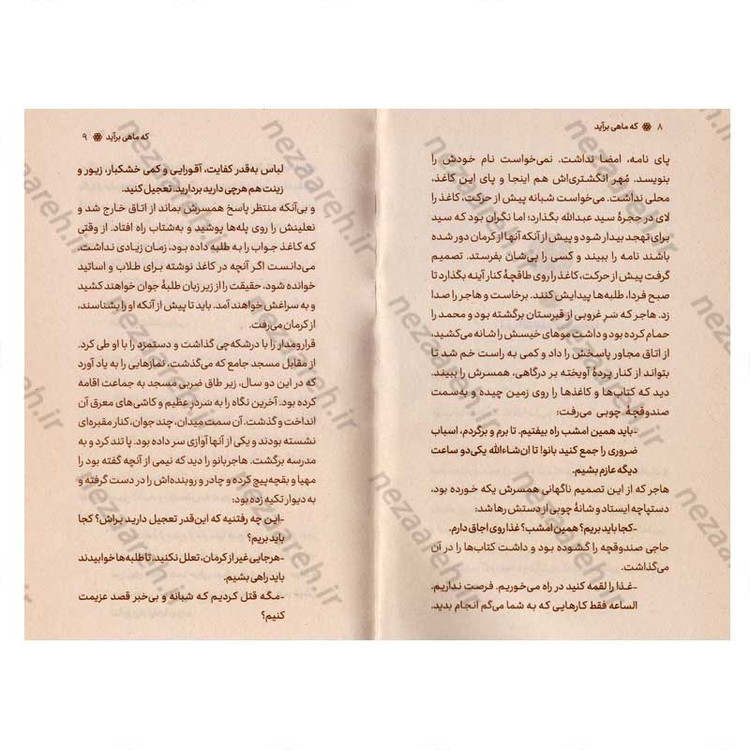 ۸ که ماهی برآید
پای نامه، امضا نداشت. نمی‌خواست نام خودش را
بنویسد. مُهر انگشتری‌اش هم اینجا و پای این کاغذ،
محلی نداشت. می‌خواست شبانه پیش از حرکت، کاغذ را
لای در حجرهٔ سید عبدالله بگذارد؛ اما نگران بود که سید
برای تهجد بیدار شود و پیش از آنکه آنها از کرمان دور شده
باشند نامه را ببیند و کسی را پی‌شان بفرستد. تصمیم
گرفت پیش از حرکت، کاغذ را روی طاقچهٔ کنار آینه بگذارد تا
صبح فردا، طلبه‌ها پیدایش کنند. برخاست و هاجر را صدا
زد. هاجر که سَرِ غروبی از قبرستان برگشته بود و محمد را
حمام کرده بود و داشت موهای خیسش را شانه می‌کشید،
از اتاق مجاور پاسخش را داد و کمی به راست خم شد تا
بتواند از کنار پردهٔ آویخته بر درگاهی، همسرش را ببیند.
دید که کتاب‌ها و کاغذها را روی زمین چیده و به‌سمت
صندوقچهٔ چوبی می‌رفت:
-باید همین امشب راه بیفتیم. تا برم و برگردم، اسباب
ضروری را جمع کنید بانو! تا ان‌شاءالله یکی‌دو ساعت
دیگه عازم بشیم.
هاجر که از این تصمیم ناگهانی همسرش یکه خورده بود،
دستپاچه ایستاد و شانهٔ چوبی از دستش رها شد:
-کجا باید بریم؟ همین امشب؟ غذا روی اجاق دارم.
حاجی صندوقچه را گشوده بود و داشت کتاب‌ها را در آن
می‌گذاشت.
-غذا را لقمه کنید در راه می‌خوریم. فرصت نداریم.
الساعه فقط کارهایی که به شما می‌گم انجام بدید.
که ماهی برآید ۹
لباس به‌قدر کفایت، آقورایی و کمی خشکبار، زیور و
زینت هم هرچی دارید بردارید. تعجیل کنید.
و بی‌آنکه منتظر پاسخ همسرش بماند از اتاق خارج شد و
نعلینش را روی پله‌ها پوشید و به‌شتاب راه افتاد. از وقتی
که کاغذ جواب را به طلبه داده بود، زمان زیادی نداشت.
می‌دانست اگر آنچه در کاغذ نوشته برای طلاب و اساتید
خوانده شود، حقیقت را از زیر زبان طلبهٔ جوان خواهند کشید
و به سراغش خواهند آمد. باید تا پیش از آنکه او را بشناسند،
از کرمان می‌رفت.
قرارومدار را با درشکه‌چی گذاشت و دستمزد را با او طی کرد.
از مقابل مسجد جامع که می‌گذشت، نمازهایی را به یاد آورد
که در این دو سال، زیر طاق ضربی مسجد به جماعت اقامه
کرده بود. آخرین نگاه را به سَردرِ عظیم و کاشی‌های معرق آن
انداخت و گذشت. آن سمت میدان، چند جوان، کنار مقبره‌ای
نشسته بودند و یکی از آنها آوازی سر داده بود. پا تند کرد و به
مدرسه برگشت. هاجربانو را دید که نیمی از آنچه گفته بود را
مهیا و بقچه‌پیچ کرده و چادر و روبنده‌اش را در دست گرفته و
به دیوار تکیه زده بود:
-این چه رفتنیه که این‌قدر تعجیل دارید براش؟ کجا
باید بریم؟
-هرجایی غیر از کرمان، تعلل نکنید. تا طلبه‌ها خوابیدند
باید راهی بشیم.
-مگه قتل کردیم که شبانه و بی‌خبر قصد عزیمت
کنیم؟
nezaareh.ir